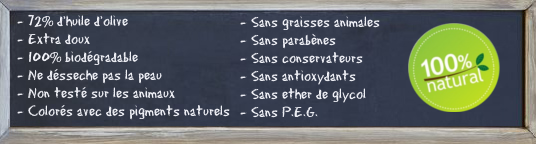 - 72% d'huile d'olive
- Extra doux
- 100% biodégradable
- Ne désseche pas la peau
- Non testé sur les animaux
- Colorés avec des pigments naturels
- Sans graisses animales
- Sans parabènes
- Sans conservateurs
- Sans antioxydants
- Sans ether de glycol
- Sans P.E.G.
100%
natural